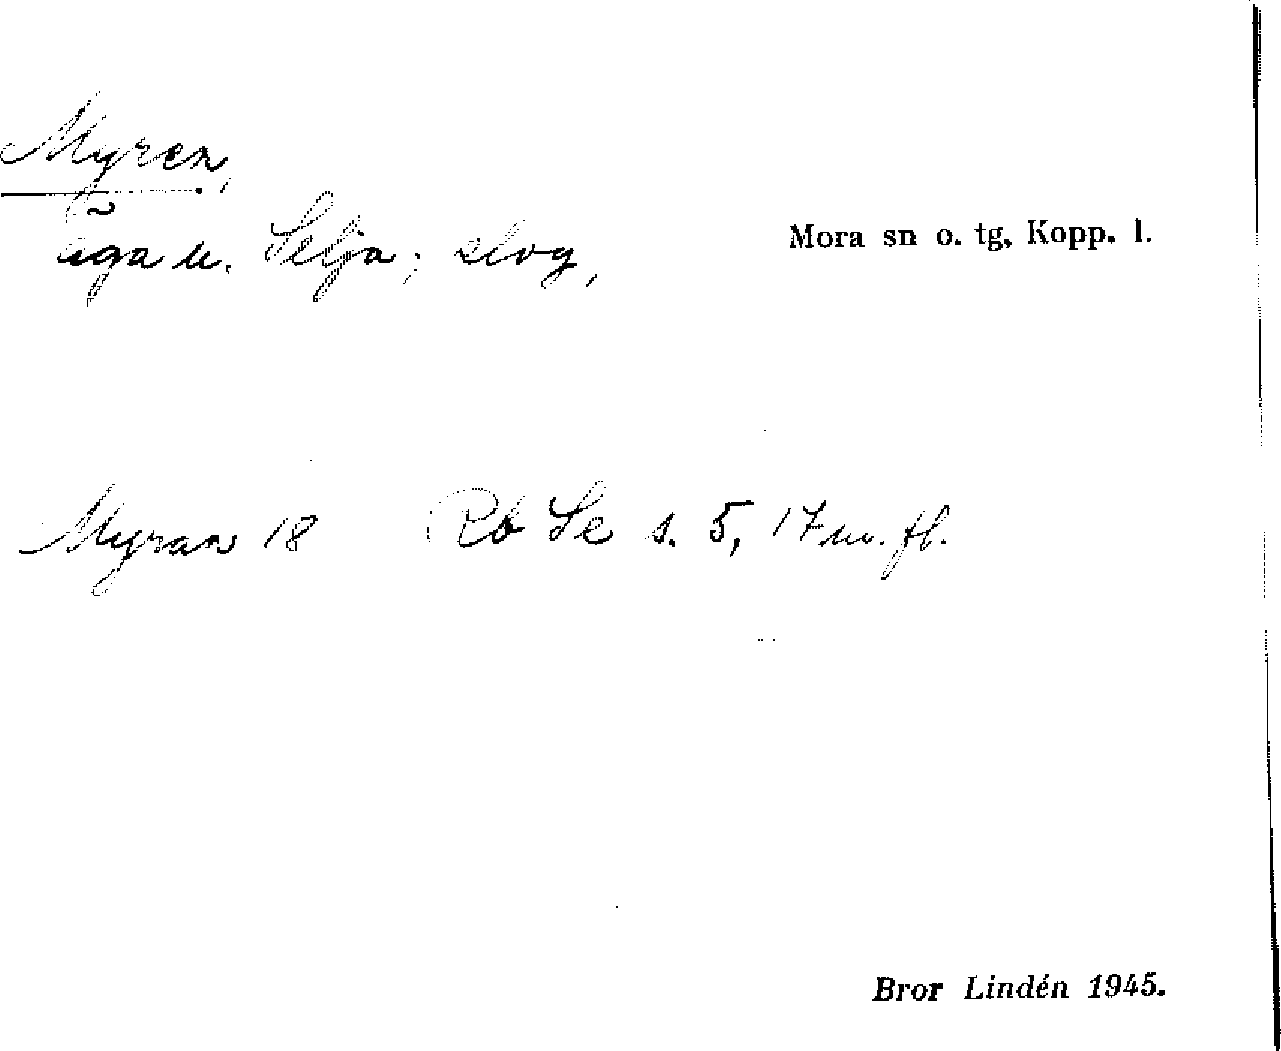 Myren,
äga u. Selja; skog,
Mora sn o. tg, Kopp. l.
Myran 18 Rb Se s. 5, 17 m. fl.
Bror Lindén 1945.